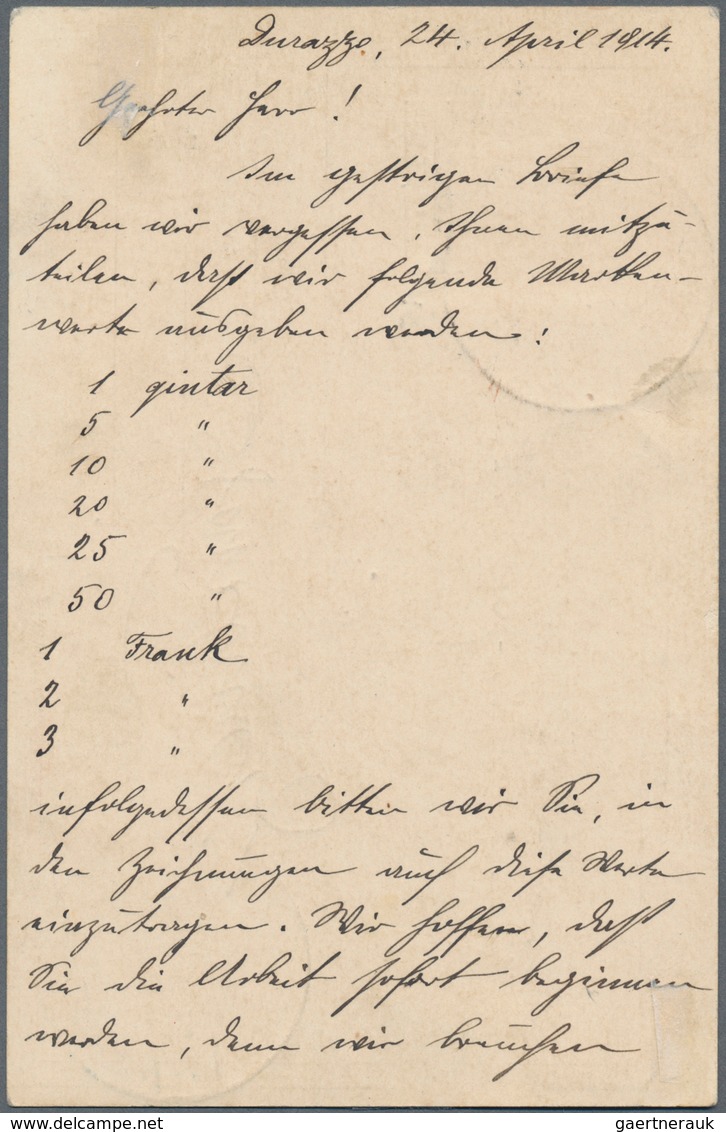 Durazzo, 24. April 1914.
Geehrter Herr!
Im gestrigen Briefe
haben wir vergessen, Ihnen mitzu-
teilen, daß wir folgende Marken-
werte ausgeben werden:
1 qintar
5 "
10 "
20 "
25 "
50 "
1 Frank
2 "
3 "
infolgedessen bitten wir Sie, in
den Zeichnungen auch diese Werte
einzutragen. Wir hoffen, daß
Sie die Arbeit sofort beginnen
werden, denn wir brauchen
gaertnerauk__